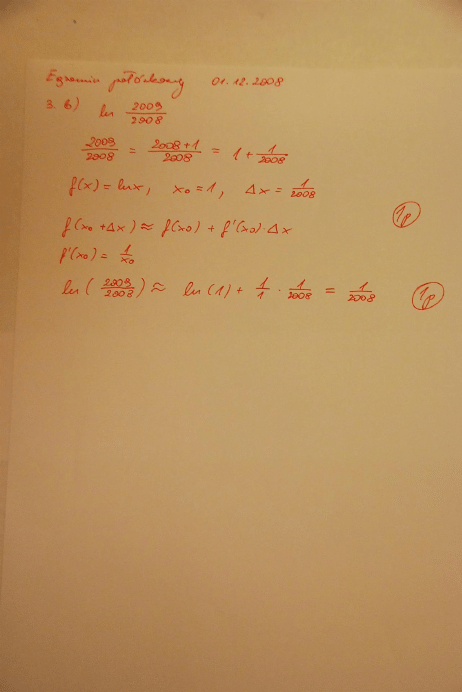 Egzamin połówkowy 01.12.2008
3. b) ln 2009/2908
2009/2008 = 2008+1/2008 = 1 + 1/2008
f(x) = lnx, x₀ = 1, Δx = 1/2008
1p
f(x₀ + Δx) ≈ f(x₀) + f'(x₀)·Δx
f'(x₀) = 1/x₀
ln(2009/2008) ≈ ln(1) + 1/1 · 1/2008 = 1/2008
1p